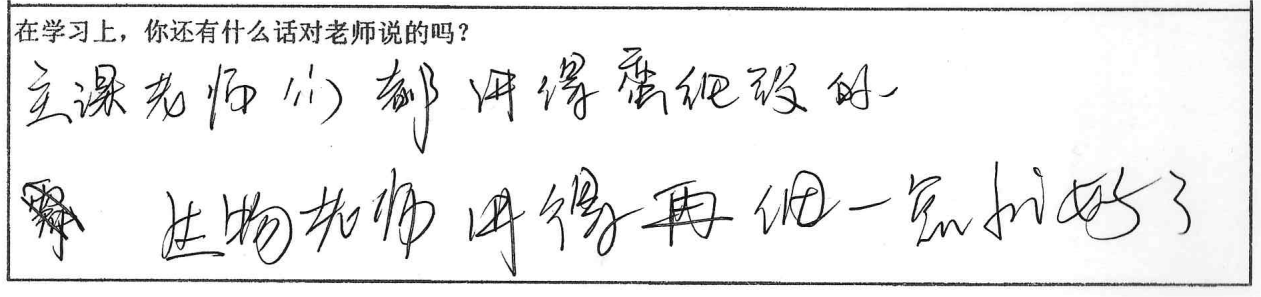 在学习上，你还有什么话对老师说的吗？
主课老师们都讲得蛮细致的
生物老师讲得再细一点就好了